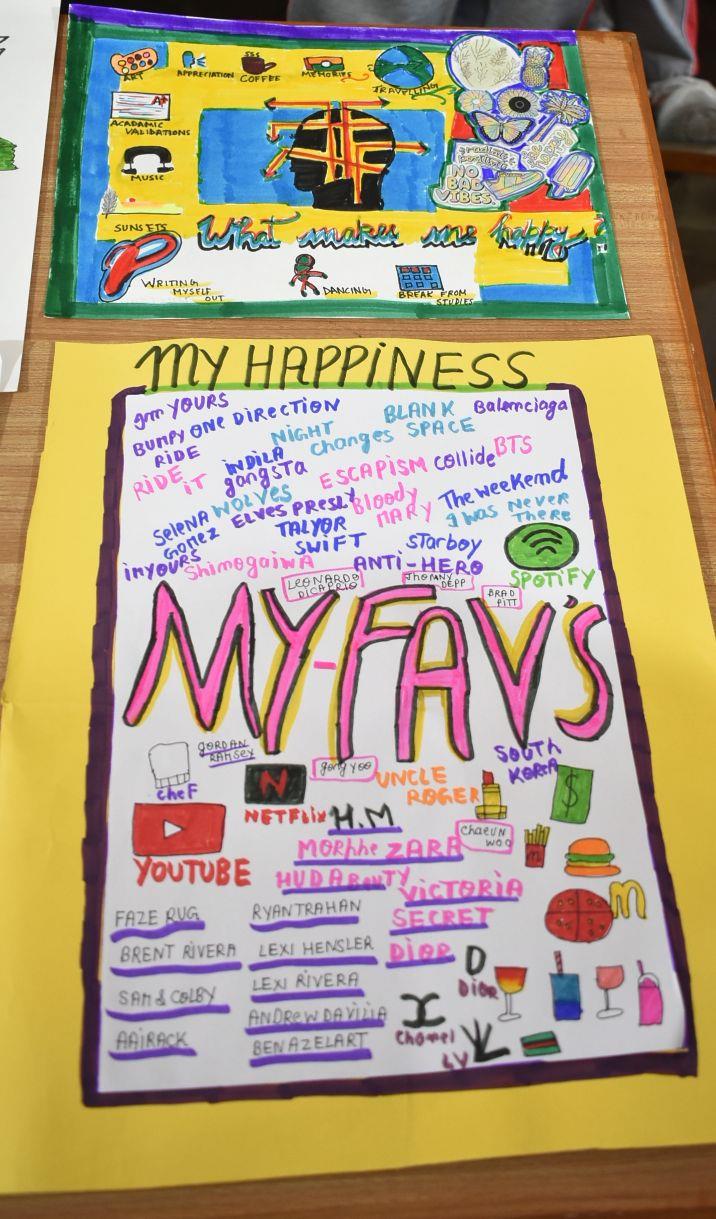 ART
APPRECIATION
COFFEE
MEMORIES
TRAVELLING
A+
ACADAMIC
VALIDATIONS
MUSIC
NO
BAD
VIBES
SUNSETS
What makes me happy
WRITING
MYSELF
OUT
DANCING
BREAK FROM
STUDIES
MY HAPPINESS
gm YOURS
ONE DIRECTION
BLANK
SPACE
Balemciaga
BUMPY
RIDE
NIGHT
Changes
RIDE iT
iNDiLA
gangsta
ESCAPISM
collide
BTS
SELENA
GOMEZ
WOLVES
ELVES PRESLY
Bloody
MARY
The weekend
I was NEVER
THERE
TALYOR
SWIFT
STarboy
inYOURS
Shimogaiwa
ANTI-HERO
SPOTiFY
LEONARDO
DICAPRIO
JHOMNY
DEPP
BRAD
PITT
MY-FAV's
cheF
gORDAN
RAMSEY
N
NETFlix
gong yoo
UNCLE
ROGER
SOUTH
KOREA
$
H.M
YOUTUBE
MORPhe
ZARA
chaeun
woo
m
HUDA BeauTY
VICTORIA
SECRET
DiOR
m
FAZE RUG
BRENT RIVERA
SAM & COLBY
AAiRACK
RYAN TRAHAN
LEXI HENSLER
LEXI RIVERA
ANDREW DAVILIA
BEN AZELART
D
DiOR
Chanel
LV